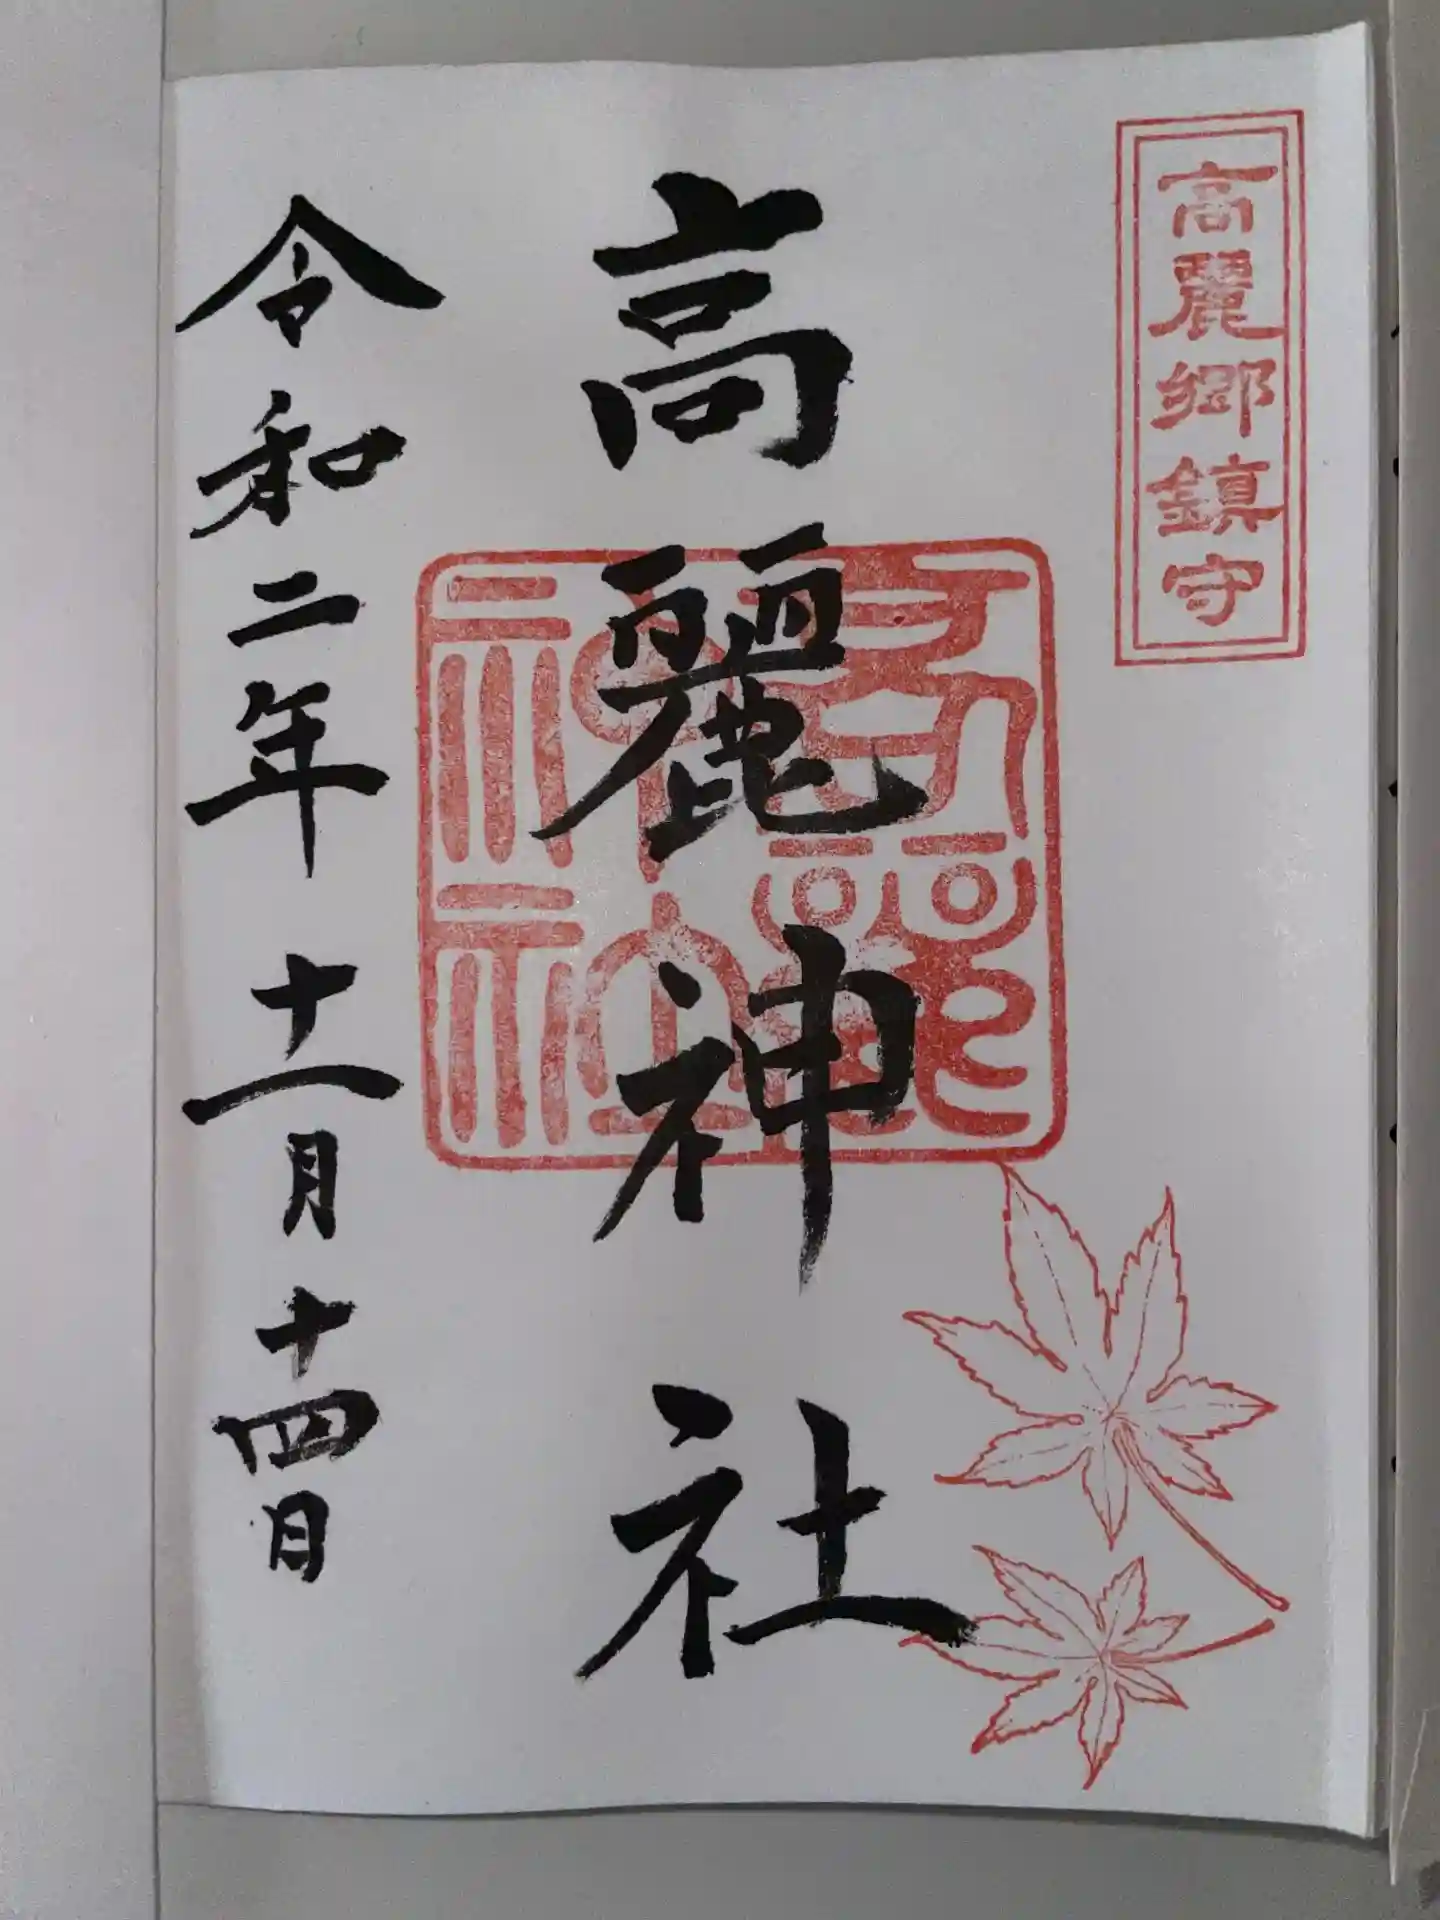 高麗郷鎮守
高麗神社
高麗神社
令和二年十一月十四日